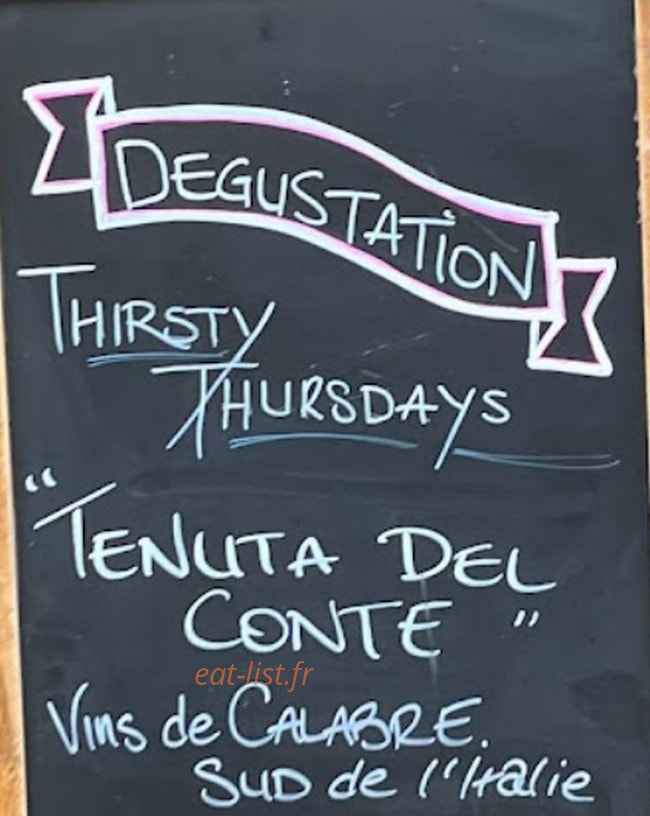 DEGUSTATiON
THIRSTY
THURSDAYS
"TENUTA DEL
CONTE"
eat-list.fr
Vins de CALABRE.
SUD de l'Italie